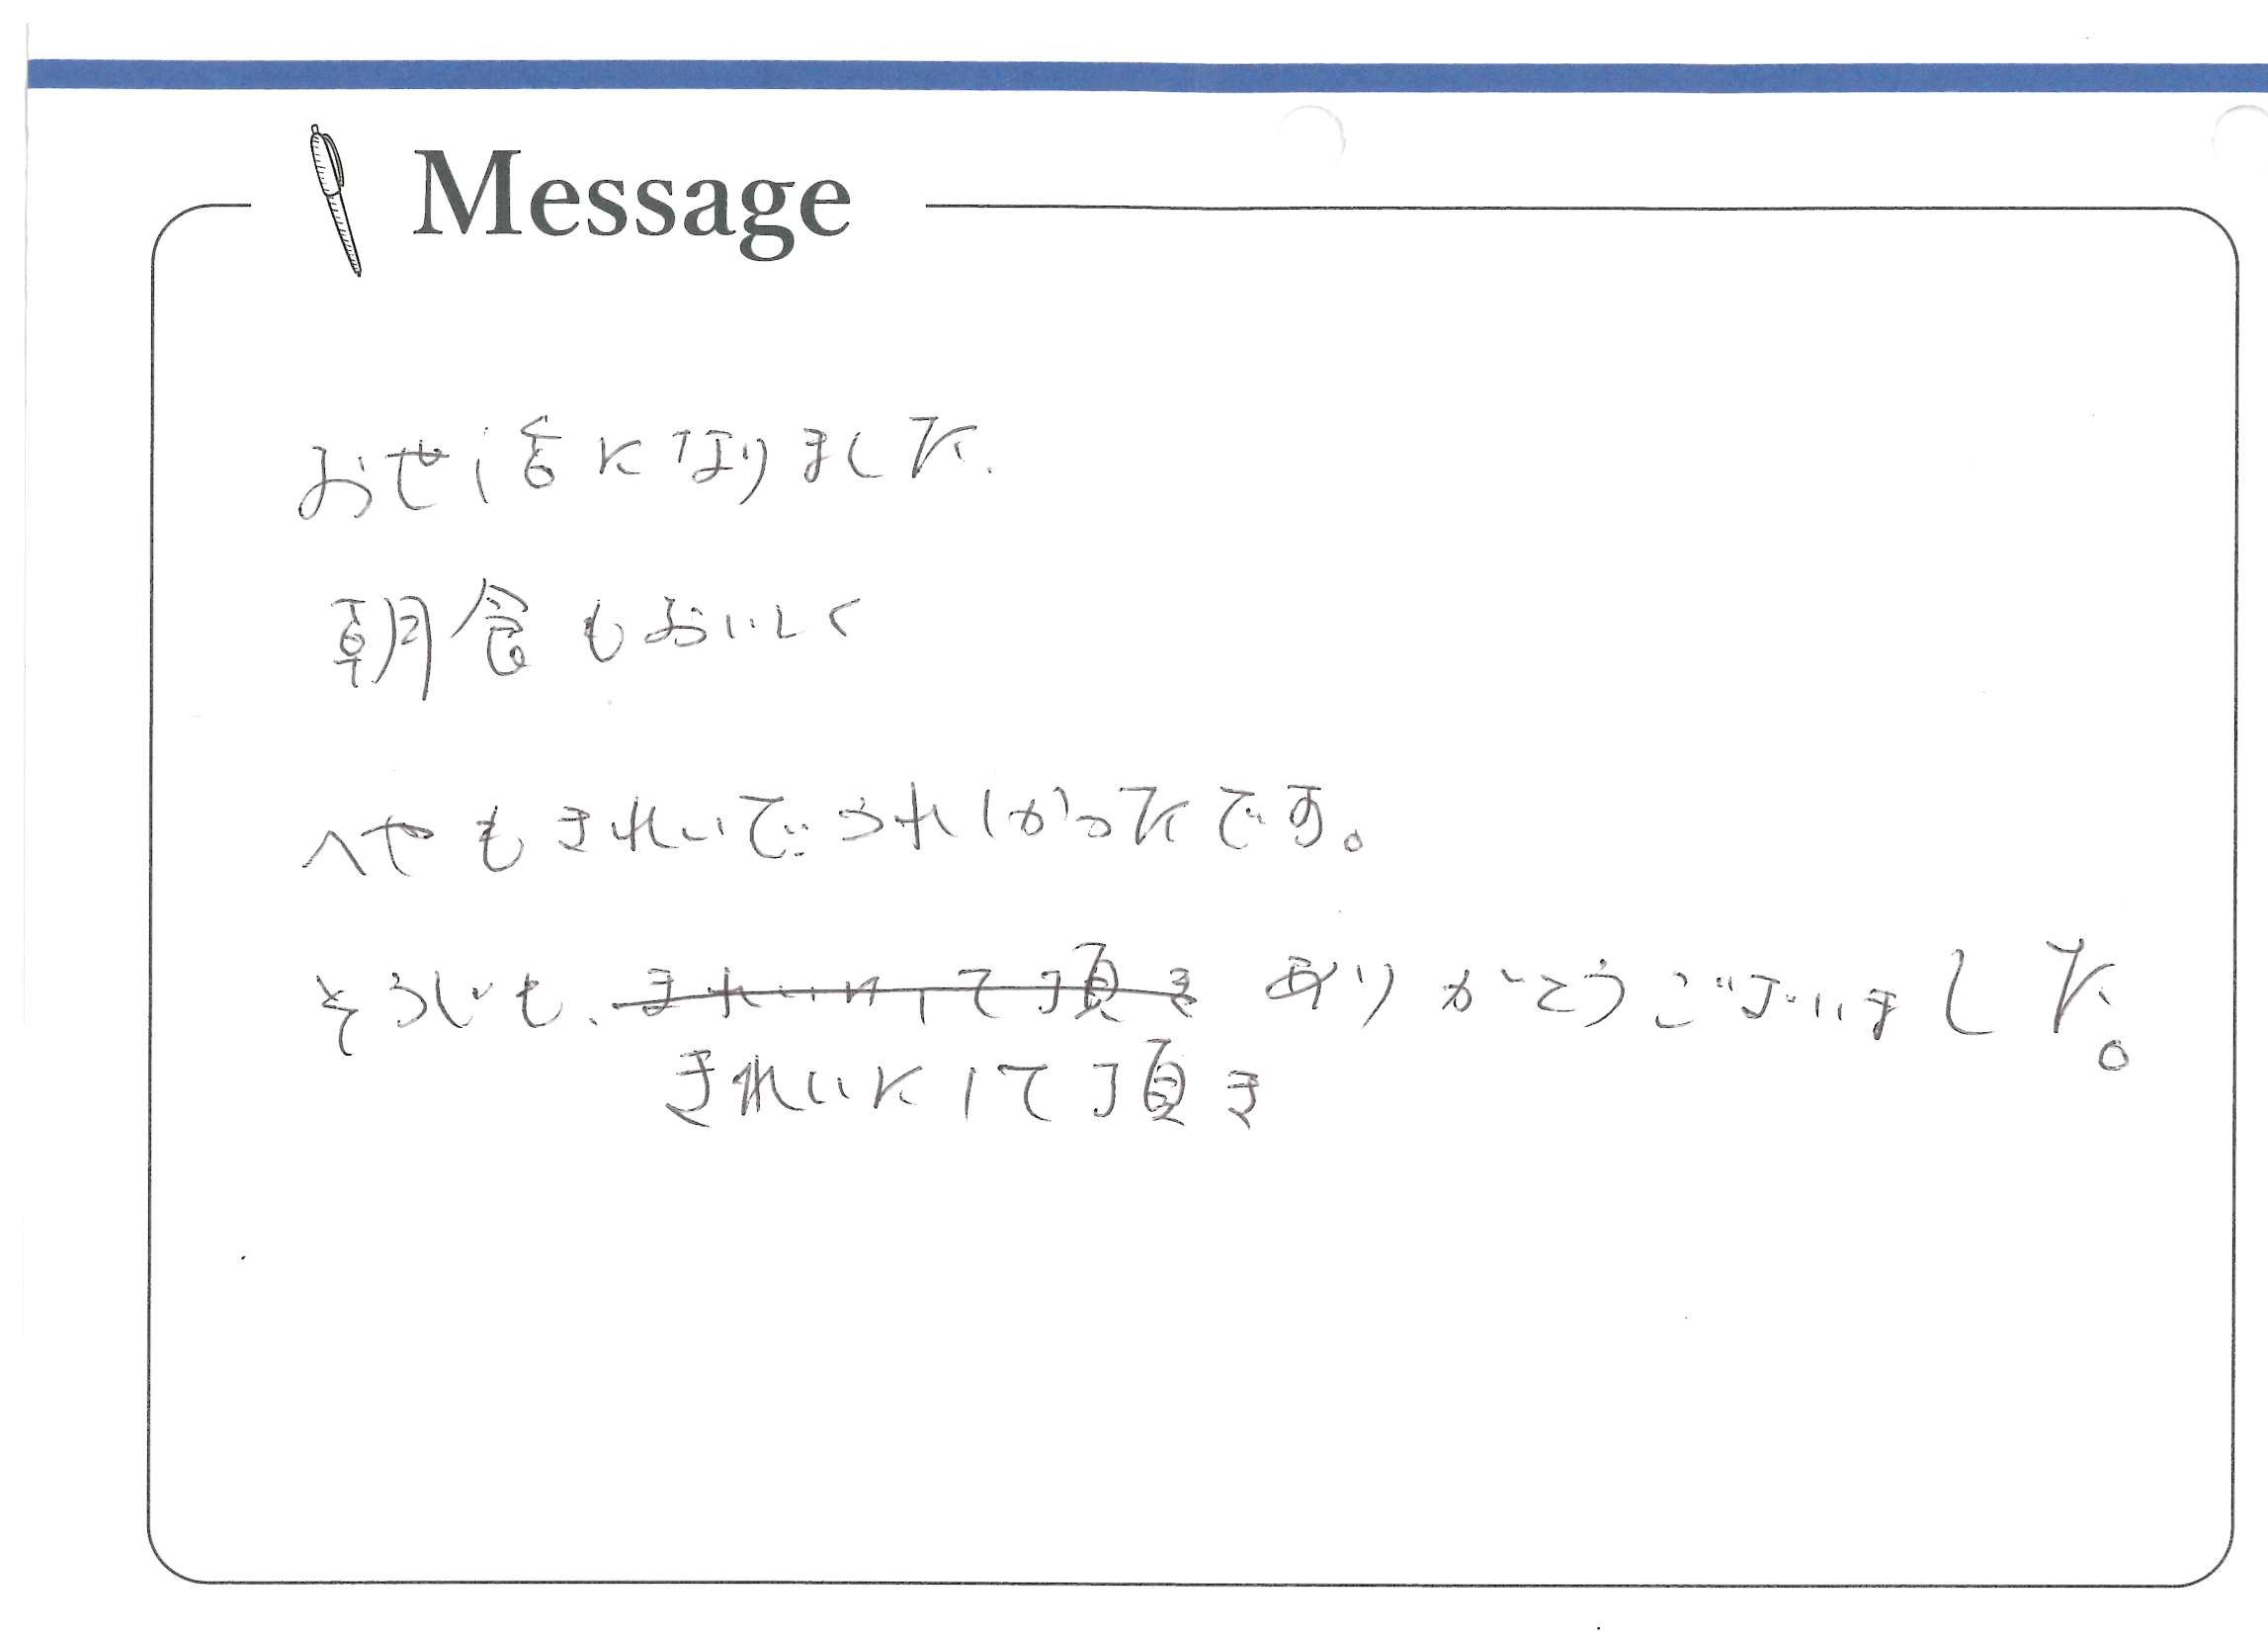 Message
お世話になりました.
朝食もおいしく
へやもきれいでうれしかったです。
そうじも、きれいにして頂き ありがとうございました。
きれいにして頂き